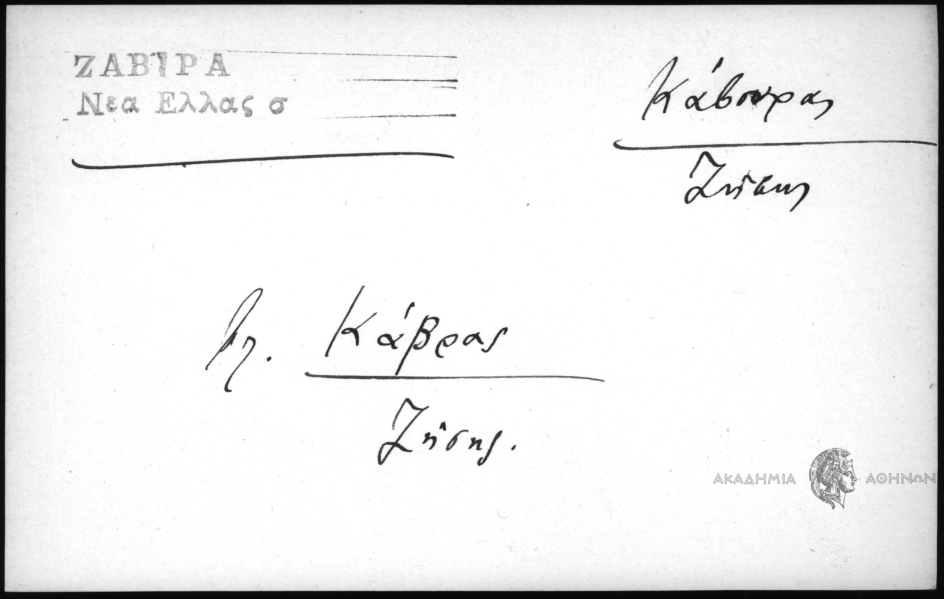 ΖΑΒΙΡΑ
Νεα Ελλας σ
Κάβουρας
Ζήσης
βλ. Κάβρας
Ζήσης.
ΑΚΑΔΗΜΙΑ ΑΘΗΝΩΝ